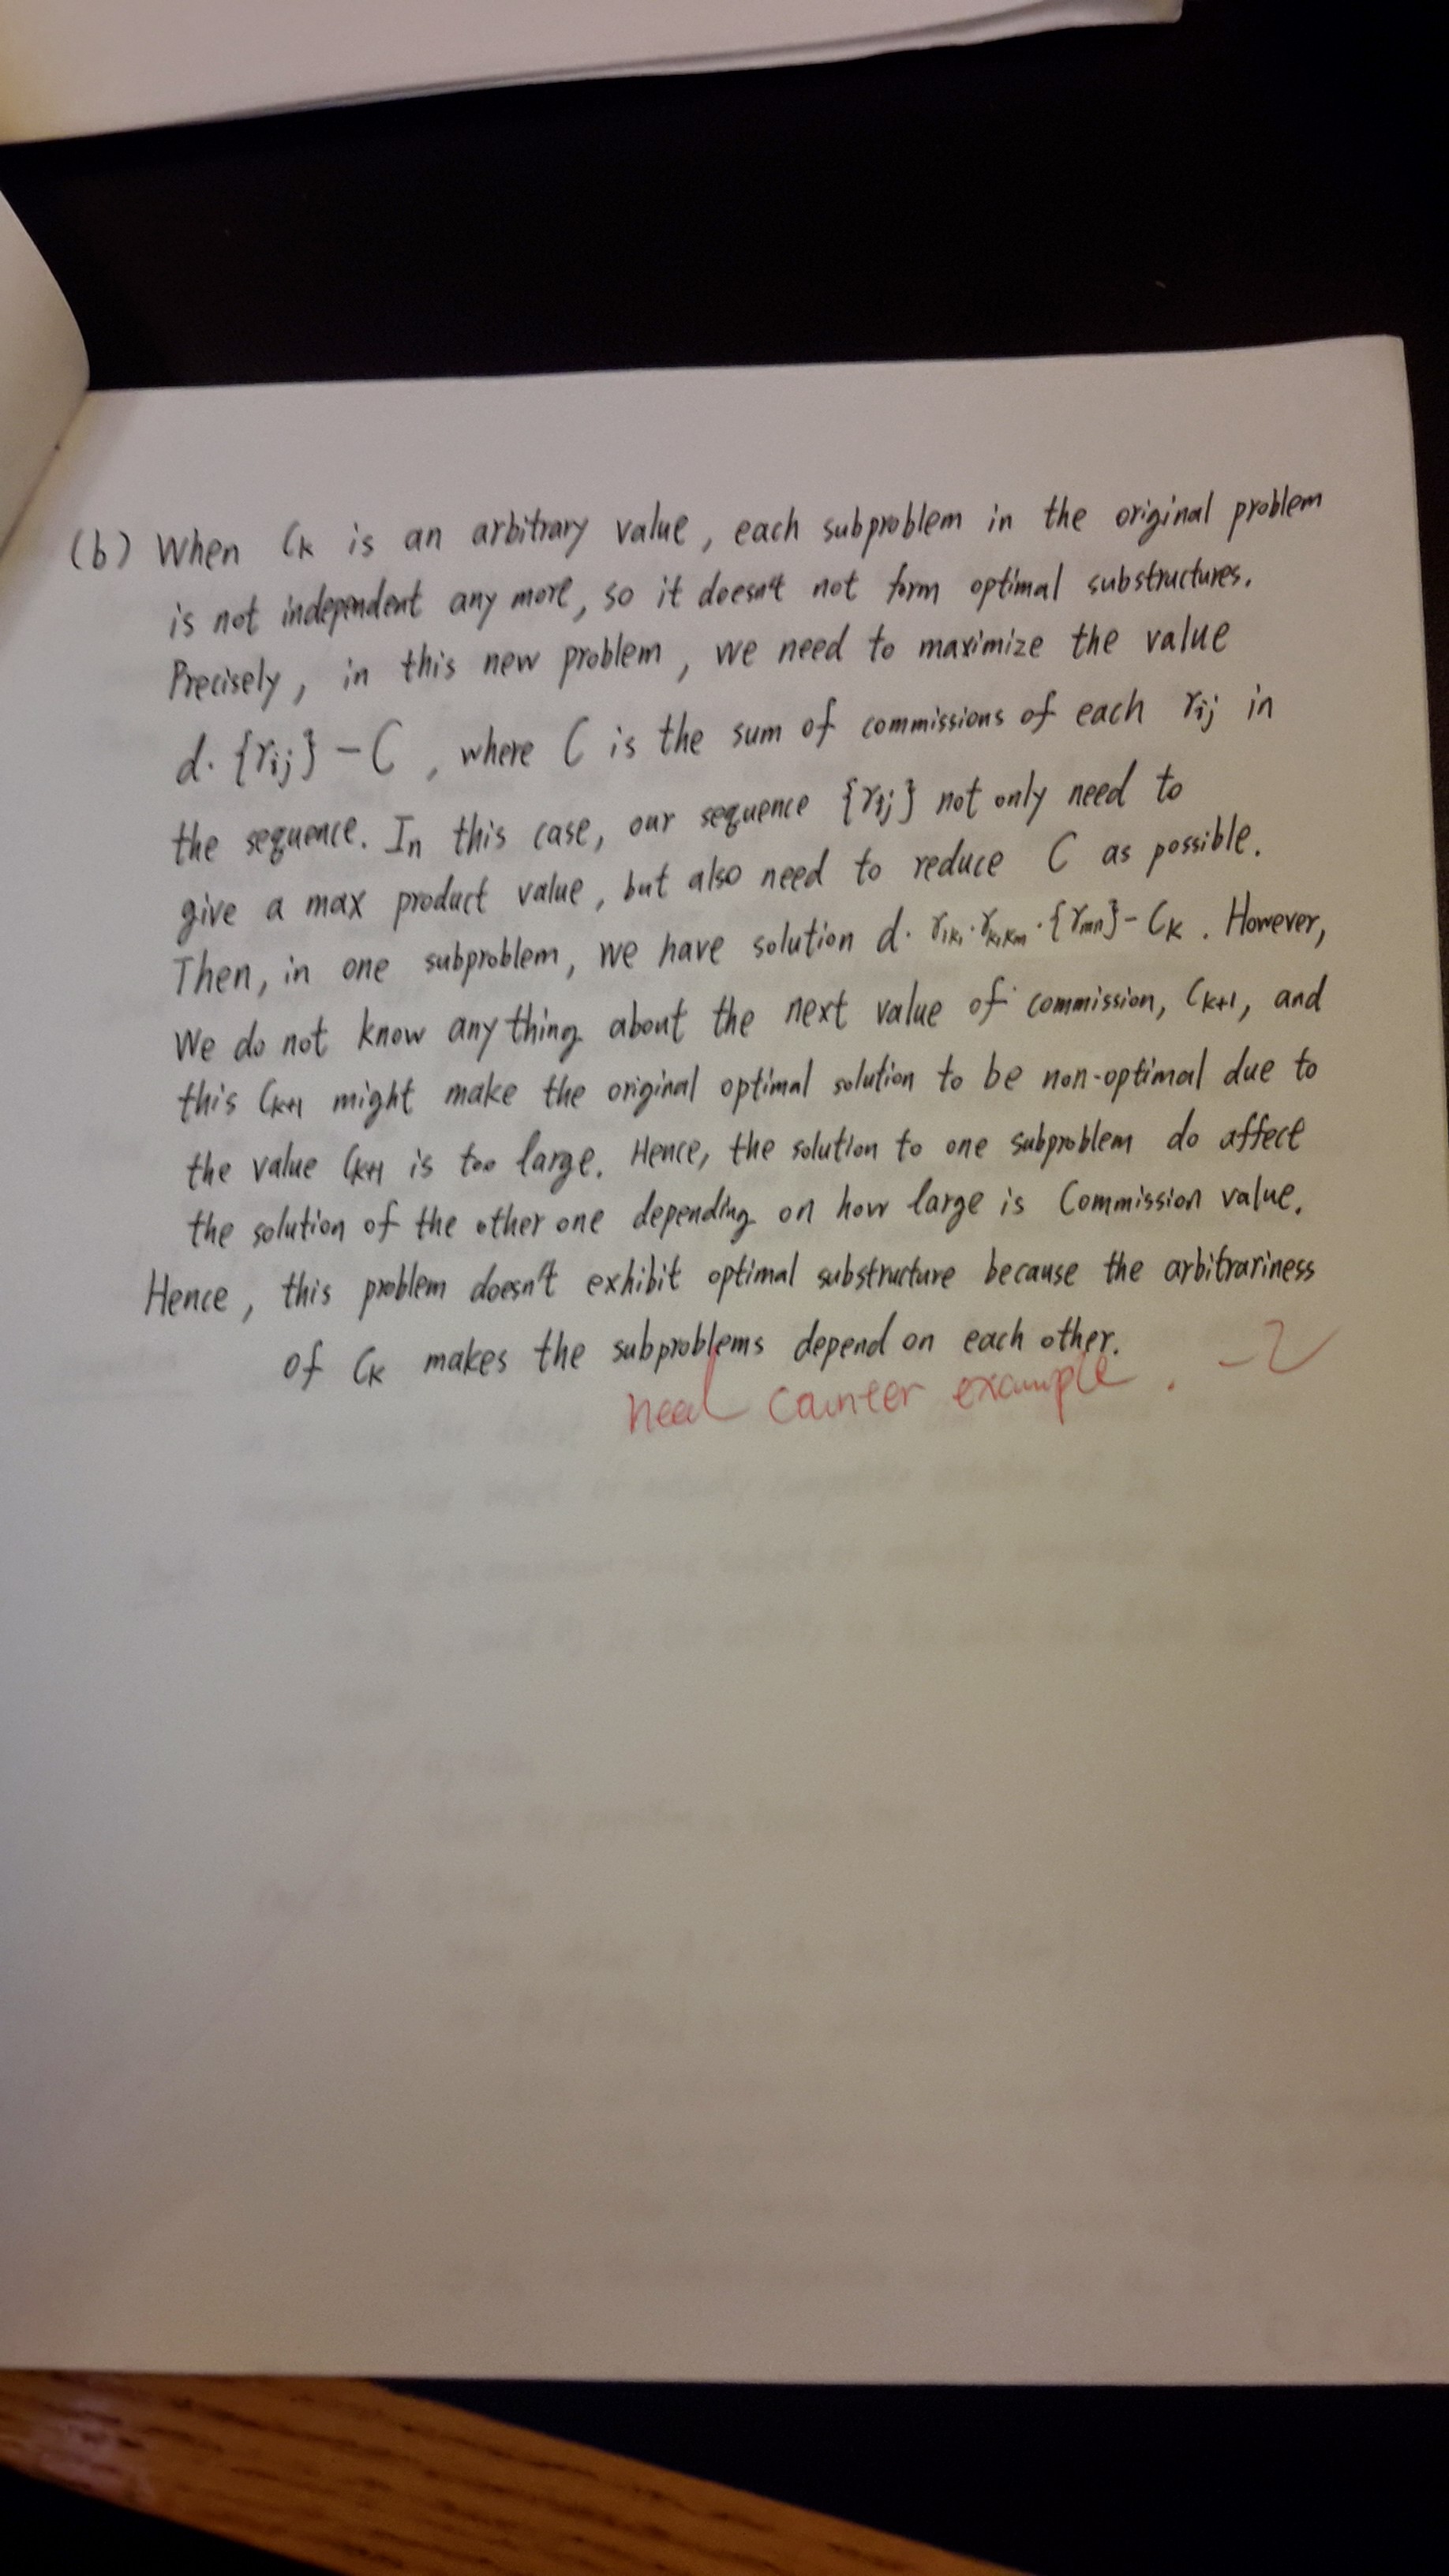 (b) When Ck is an arbitrary value, each subproblem in the original problem
is not independent any more, so it doesn't not form optimal substructures.
Precisely, in this new problem, we need to maximize the value
d. {rij} - C, where C is the sum of commissions of each rij in
the sequence. In this case, our sequence {rij} not only need to
give a max product value, but also need to reduce C as possible.
Then, in one subproblem, we have solution d. r1k1 · rk1km · {rmn} - Ck. However,
We do not know anything about the next value of commission, Ck+1, and
this Ck+1 might make the original optimal solution to be non-optimal due to
the value Ck+1 is too large. Hence, the solution to one subproblem do affect
the solution of the other one depending on how large is Commission value.
Hence, this problem doesn't exhibit optimal substructure because the arbitrariness
of Ck makes the subproblems depend on each other.
need counter example. -2